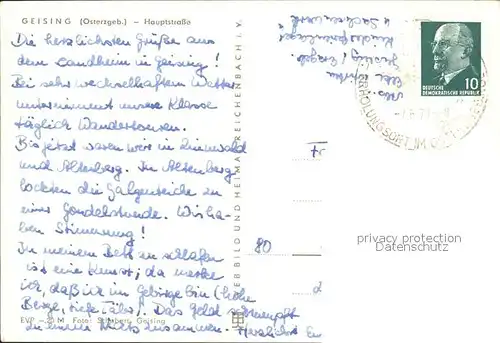 GEISING (Osterzgeb.) – Hauptstraße
Die herzlichsten Grüße aus
dem Landheim in Geising!
Bei sehr wechselhaftem Wetter
unternimmt unsere Klasse
täglich Wandertouren.
Bis jetzt waren wir in Zinnwald
und Altenberg. In Altenberg
lockten die Galgenteiche zu
einer Gondelstunde. Wir ha-
ben Stimmung!
In meinem Bett zu schlafen
ist eine Kunst; da merke
ich, daß ich im Gebirge bin (hohe
Berge, tiefe Täler). Das Geld schrumpft
zu einem Nichts zusammen. Herzlichst
EVP –.20 M Foto: Geising
VEB BILD UND HEIMAT REICHENBACH i. V.
Abs.
Geising / Erzgeb.
Kinderferienlager
10
DEUTSCHE
DEMOKRATISCHE REPUBLIK
ERHOLUNGSORT IM
80
privacy protection
Datenschutz